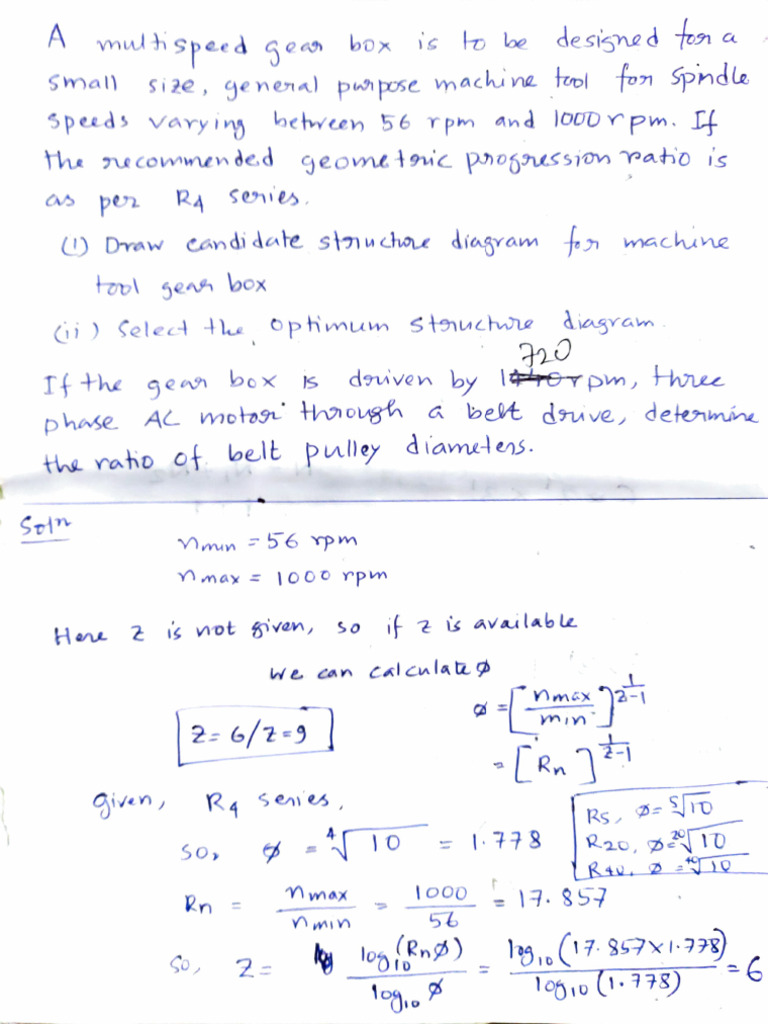 A multispeed gear box is to be designed for a
small size, general purpose machine tool for spindle
speeds varying between 56 rpm and 1000 rpm. If
the recommended geometric progression ratio is
as per R4 series.
(i) Draw candidate structure diagram for machine
tool gear box
(ii) Select the optimum structure diagram.
720
If the gear box is driven by 1440 rpm, three
phase AC motor through a belt drive, determine
the ratio of belt pulley diameters.
Soln
nmin = 56 rpm
nmax = 1000 rpm
Here z is not given, so if z is available
we can calculate ø
Z = 6/Z = 9
ø = [nmax/min]^1/z-1
= [Rn]^1/z-1
given, R4 series,
R5, ø = ⁵√10
R20, ø = ²⁰√10
R40, ø = ⁴⁰√10
so, ø = ⁴√10 = 1.778
Rn = nmax/nmin = 1000/56 = 17.857
so, Z = log10(Rnø)/log10 ø = log10(17.857x1.778)/log10(1.778) = 6